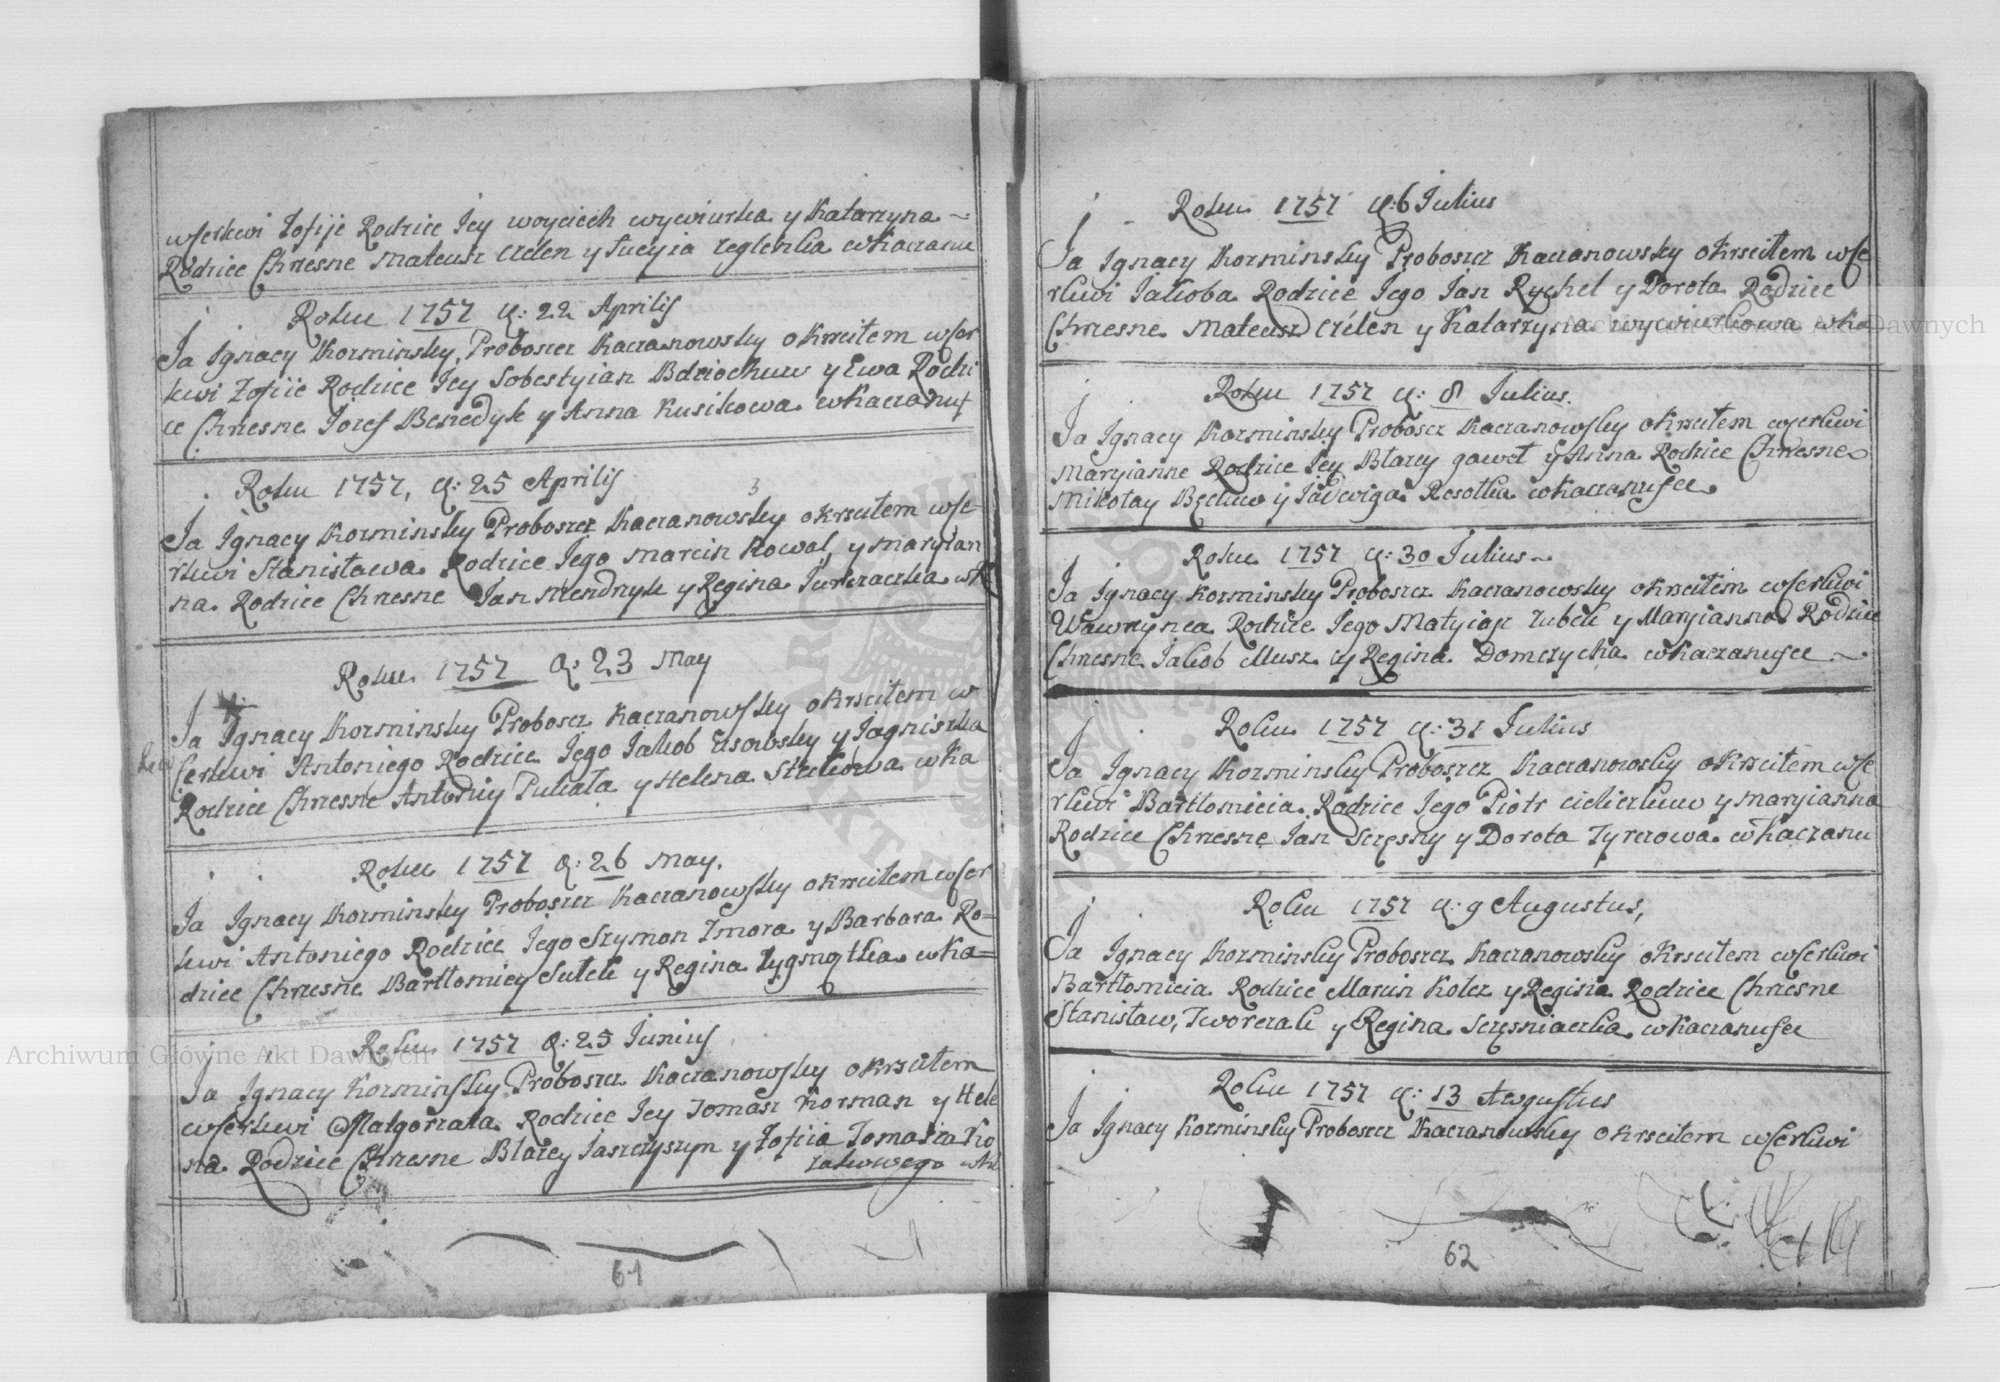 wserkwi Zofije Rodzice Jey woyciech wywiurka y Katarzyna
Rodzice Chrzesne Mateusz Czelen y Łucyia reglerka wkaczanu
Roku 1757 d: 22 Aprilis
Ja Ignacy Kozminsky Proboszcz Kaczanowsky okrzcitem wser
kwi Zofije Rodzice Jey Sobestyian Bdziochuw y Ewa Rodzi
ce Chrzesne Jozef Benedyk y Anna Kusikowa wkaczanu
Roku 1757, d: 25 Aprilis
Ja Ignacy Kozminsky Proboszcz Kaczanowsky okrzcitem wse-
rkwi Stanisława Rodzice Jego Marcin Kowal, y Maryian
na Rodzice Chrzesne Jan Mendryk y Regina Jurczaczka wK
Roku 1757 d: 23 May
Ja Ignacy Kozminsky Proboszcz Kaczanowsky okrzcitem w
serkwi Antoniego Rodzice Jego Jakob y Jagniszka
Rodzice Chrzesne Antoniy Pukała y Helena wka
Roku 1757 d: 26 May.
Ja Ignacy Kozminsky Proboszcz Kaczanowsky okrzcitem wser
kwi Antoniego Rodzice Jego Szymon Zmora y Barbara Ro=
dzice Chrzesne Bartłomiey Sulek y Regina Zygmątka wka=
Roku 1757 d: 25 Junius
Ja Ignacy Kozminsky Proboszcz Kaczanowsky okrzcitem
wserkwi Małgorzata Rodzice Jey Tomasz Korman y Hele
na Rodzice Chrzesne Błazey Jaszczyszyn y Zofiia Tomasza Ko
zakowego wKa
61
Roku 1757 d: 6 Julius
Ja Ignacy Kozminsky Proboszcz Kaczanowsky okrzcitem wse
rkwi Jakoba Rodzice Jego Jan Rychel y Dorota Rodzice
Chrzesne Mateusz Czelen y Katarzyna wywiurkowa wka
Roku 1757 d: 8 Julius.
Ja Ignacy Kozminsky Proboszcz Kaczanowsky okrzcitem wserkwi
Maryianne Rodzice Jey Błazey gaweł y Anna Rodzice Chrzesne
Mikołay Bęcluw y Jadwiga Rosołka wkaczanusce
Roku 1757 d: 30 Julius
Ja Ignacy Kozminsky Proboszcz Kaczanowsky okrzcitem wserkwi
Wawrzynca Rodzice Jego Matyiasz Zubek y Maryianna Rodzice
Chrzesne Jakob Musz y Regina Domczycha wkaczanusce
Roku 1757 d: 31 Julius
Ja Ignacy Kozminsky Proboszcz Kaczanowsky okrzcitem wse
rkwi Bartłomieia Rodzice Jego Piotr y Maryianna
Rodzice Chrzesne Jan Szczęsny y Dorota Tyrczowa wkaczanu
Roku 1757 d: 9 Augustus,
Ja Ignacy Kozminsky Proboszcz Kaczanowsky okrzcitem wserkwi
Bartłomieia Rodzice Marcin Kołcz y Regina Rodzice Chrzesne
Stanisław, Tworczak y Regina Szczęsniaczka wkaczanusce
Roku 1757 d: 13 Awgustus
Ja Ignacy Kozminsky Proboszcz Kaczanowsky okrzcitem wserkwi
62
Archiwum Główne Akt Dawnych
Archiwum Główne Akt Dawnych